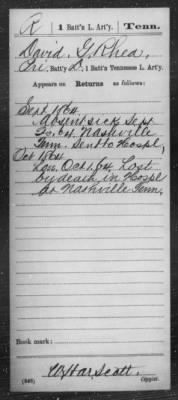 R | 1 Batt'n L. Art'y. | Tenn.
David G. Rhea,
Pri, Batt'y D, 1 Batt'n Tennessee L. Art'y.
Appears on Returns as follows:
Sept. 1864.
Absent sick Sept
30, 64. Nashville
Tenn. Sent to Hospl,
Oct 1864
Oct. 1, 64 Lost
by death, in Hospl
at Nashville Tenn,
Book mark:
(546) W. Har. Scott. Copyist.